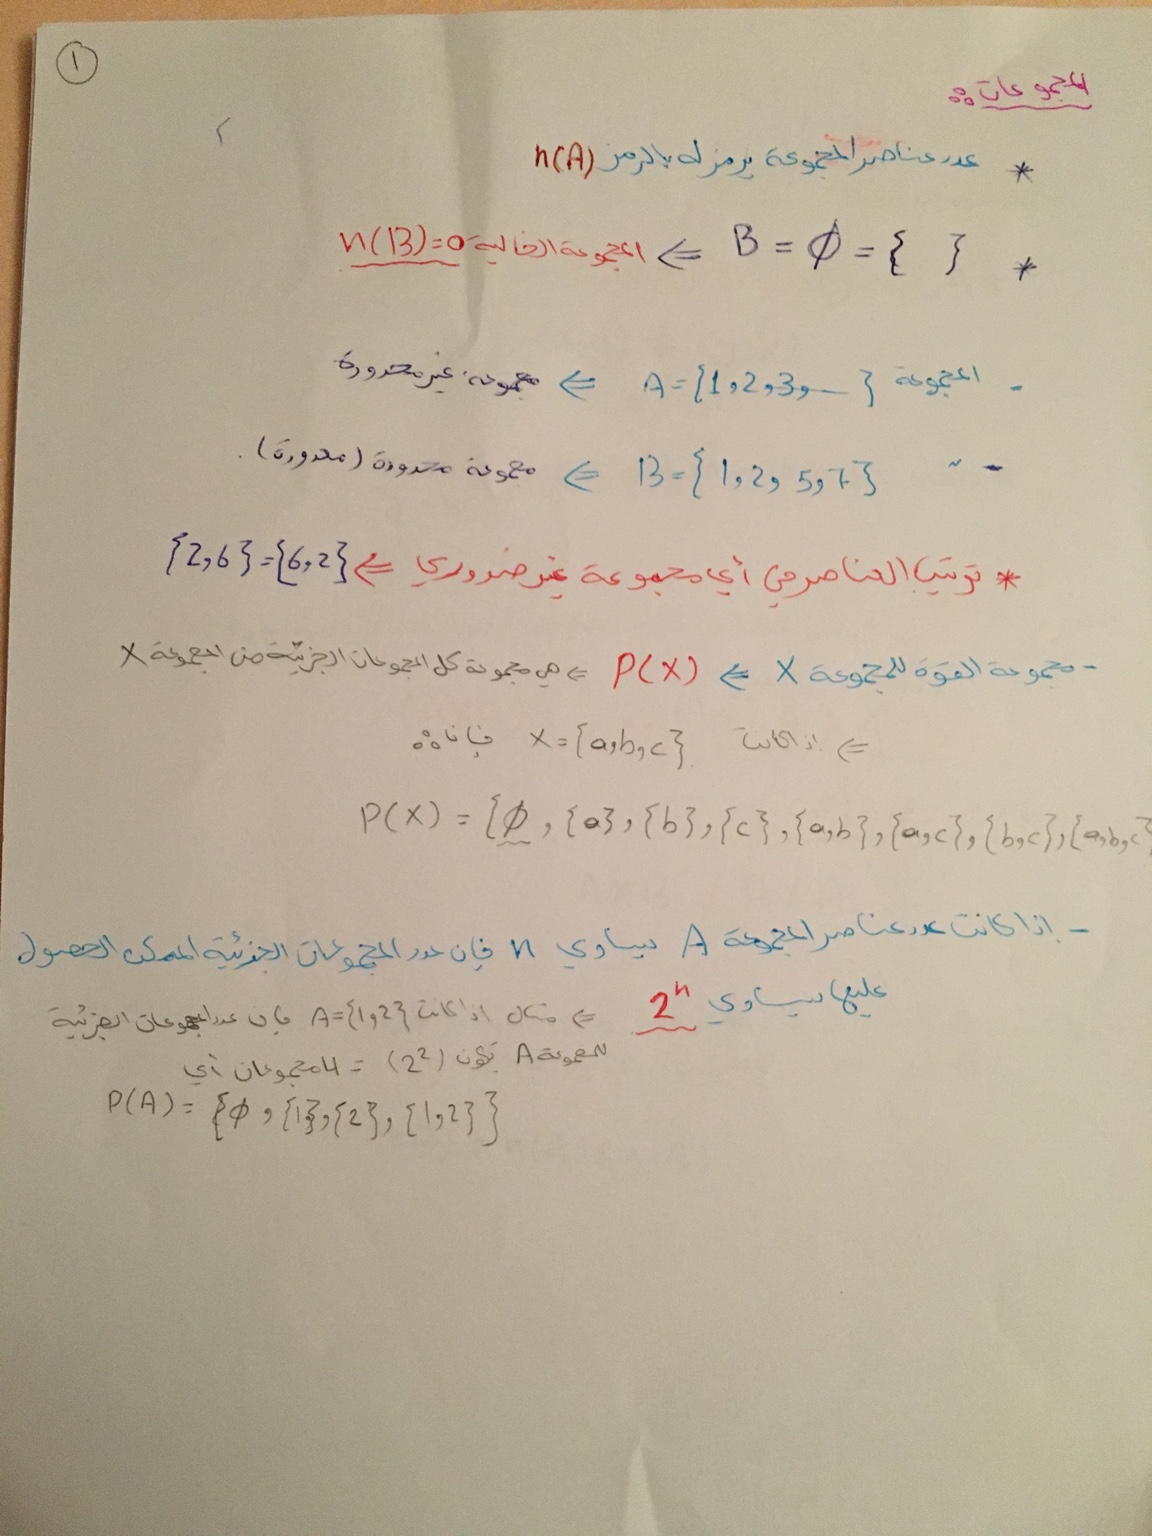 ١
المجموعات:
* عدد عناصر المجموعة يرمز له بالرمز n(A)
* B = ∅ = { } ⇐ المجموعة الخالية n(B)=0
- المجموعة A={1,2,3,...} ⇐ مجموعة غير محدودة
- " B={1,2,5,7} ⇐ مجموعة محدودة (معدودة).
* ترتيب العناصر في أي مجموعة غير ضروري ⇐ {2,6}={6,2}
- مجموعة القوة للمجموعة X ⇐ P(X) ⇐ هي مجموعة كل المجموعات الجزئية من المجموعة X
⇐ إذا كانت X={a,b,c} فإن:
P(X) = {∅, {a}, {b}, {c}, {a,b}, {a,c}, {b,c}, {a,b,c}
- إذا كانت عدد عناصر المجموعة A يساوي n فإن عدد المجموعات الجزئية الممكن الحصول
عليها يساوي 2ⁿ ⇐ مثال إذا كانت A={1,2} فإن عدد المجموعات الجزئية
للمجموعة A تكون (2²) = 4 مجموعات أي
P(A) = {∅, {1}, {2}, {1,2}}